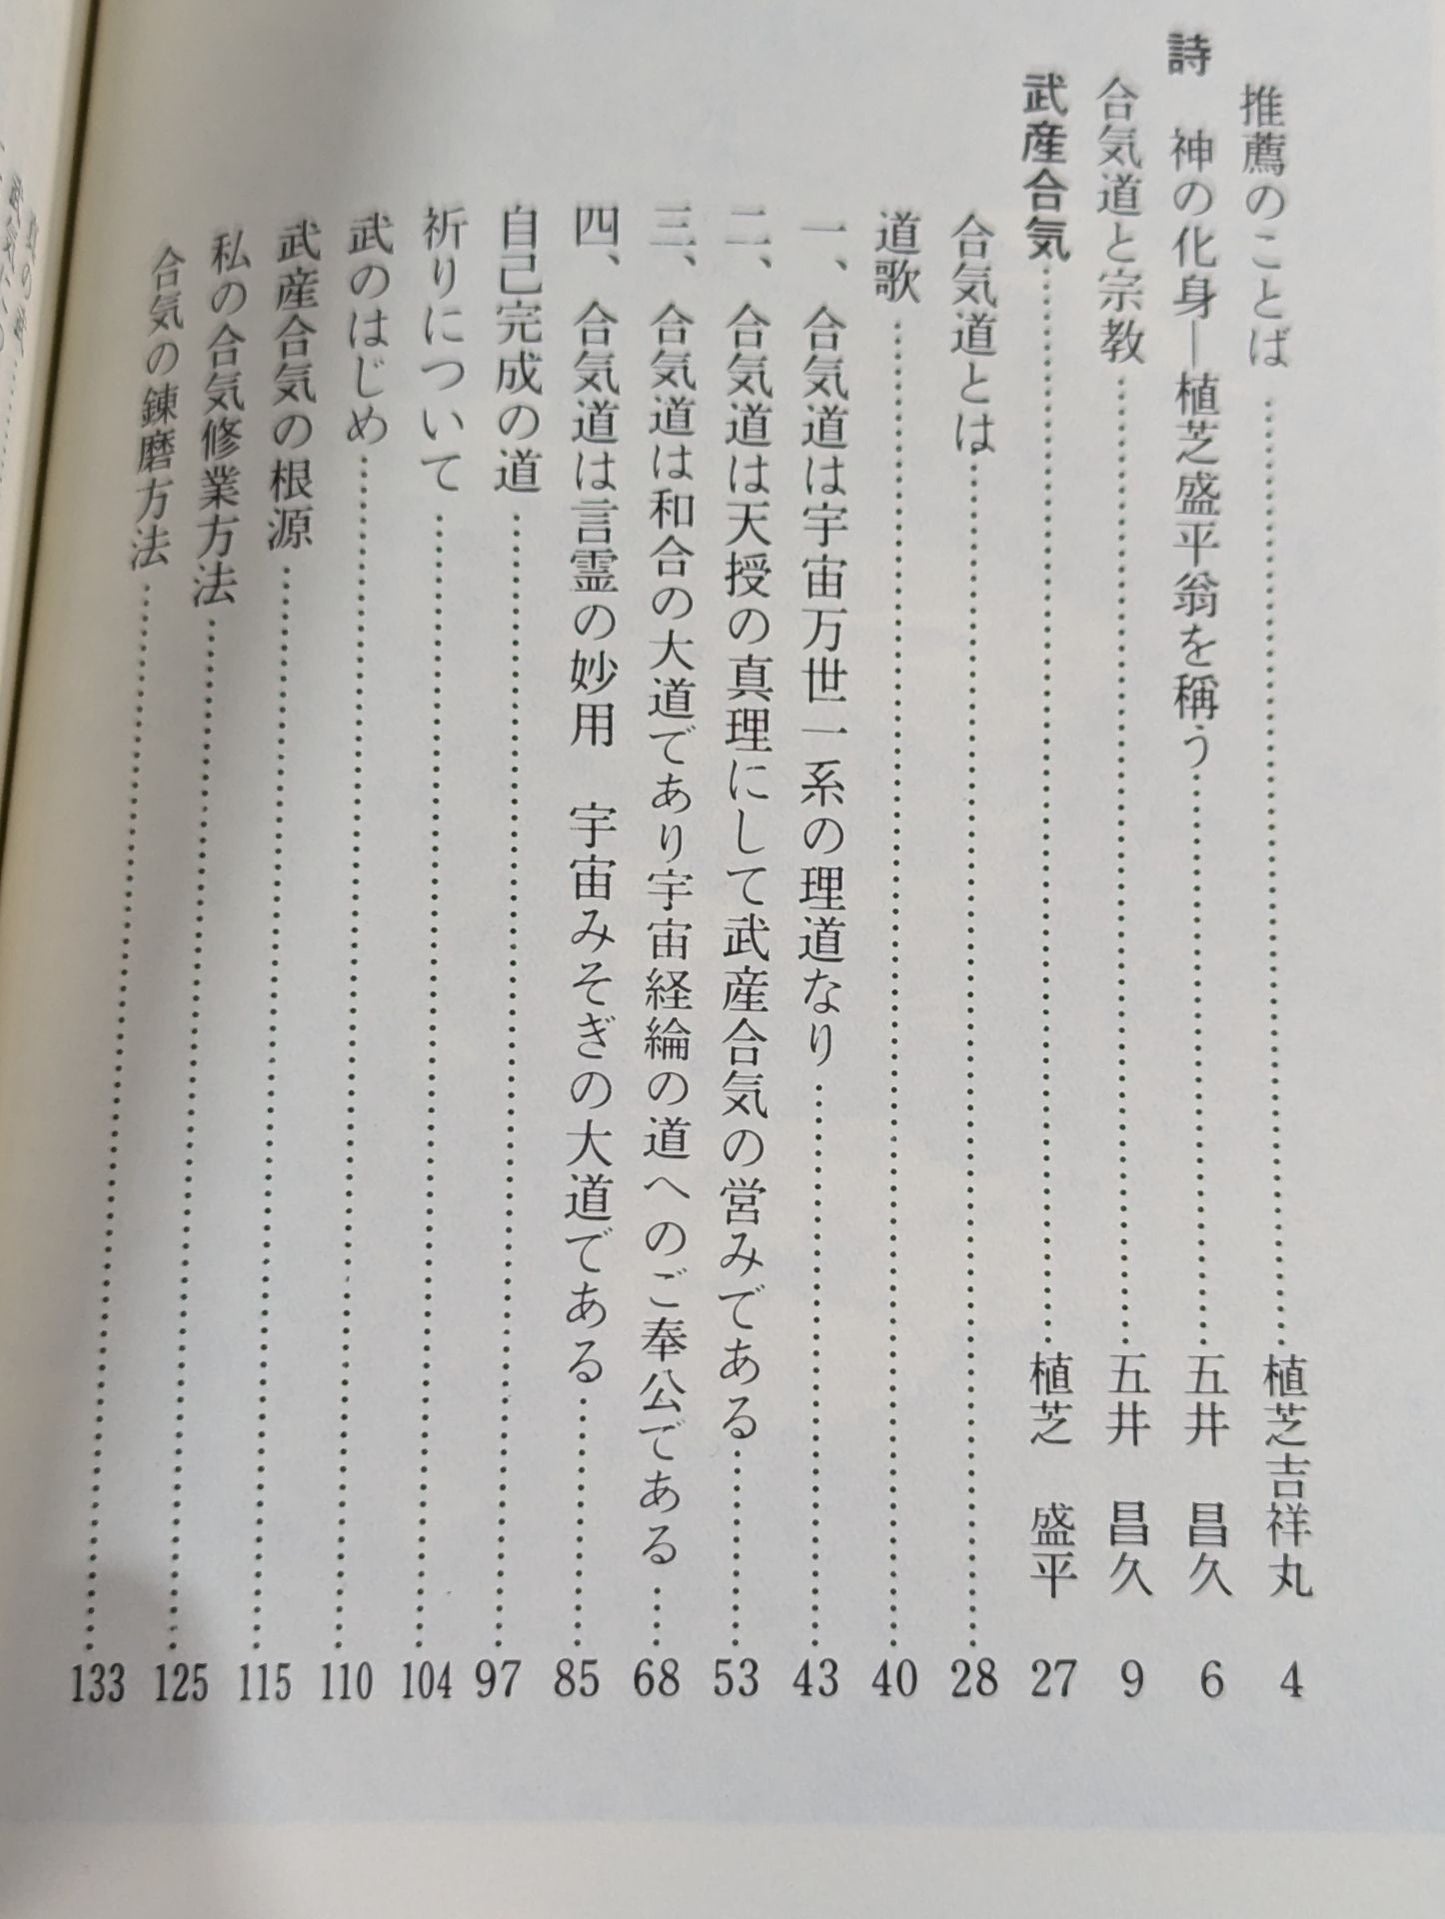 推薦のことば……植芝吉祥丸 4
詩 神の化身―植芝盛平翁を称う……五井 昌久 6
合気道と宗教……五井 昌久 9
武産合気……植芝 盛平 27
合気道とは……28
道歌……40
一、合気道は宇宙万世一系の理道なり……43
二、合気道は天授の真理にして武産合気の営みである……53
三、合気道は和合の大道であり宇宙経綸の道へのご奉公である……68
四、合気道は言霊の妙用 宇宙みそぎの大道である……85
自己完成の道……97
祈りについて……104
武のはじめ……110
武産合気の根源……115
私の合気修業方法……125
合気の錬磨方法……133